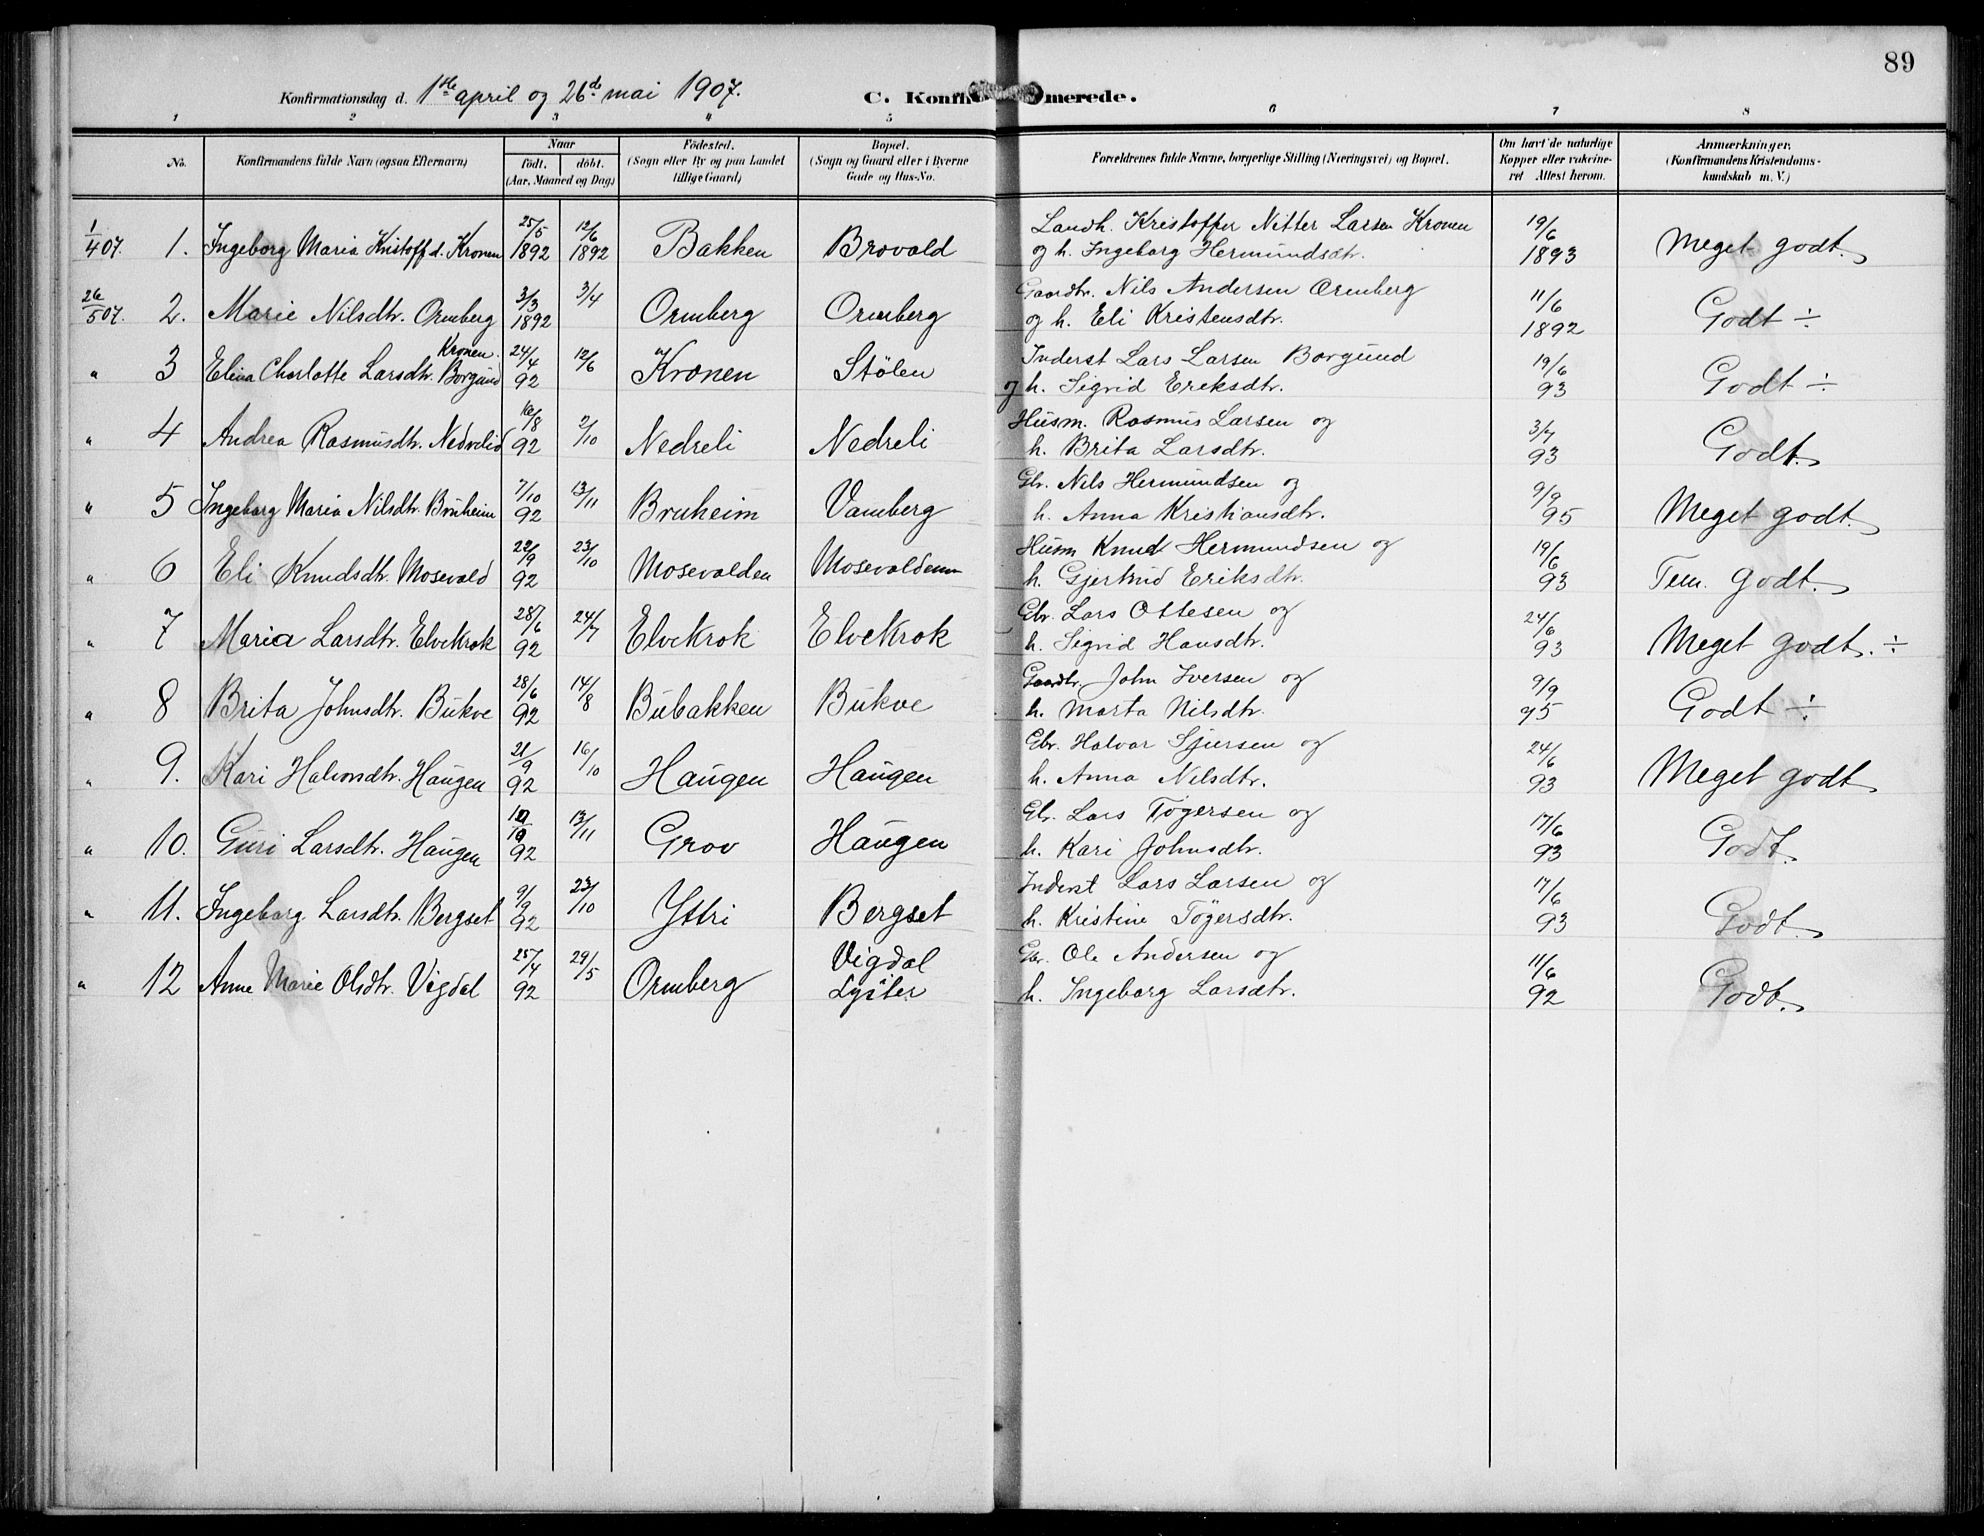 89
Konfirmationsdag d. 1ste april og 26de mai 1907. C. Konfirmerede.
1 2 3 4 5 6 7 8
No. Konfirmandens fulde Navn (ogsaa Efternavn) Naar født. døbt. (Aar, Maaned og Dag) Fødested. (Sogn eller By og paa Landet tillige Gaard) Bopæl. (Sogn og Gaard eller i Byerne Gade og Hus-No. Forældrenes fulde Navne, borgerlige Stilling (Næringsvei) og Bopæl. Om havt de naturlige Kopper eller vaccineret Attest herom. Anmærkninger. (Konfirmandens Kristendomskundskab m. V.)
1/4 07. 1. Ingeborg Maria Kristoffd. Kronen 25/5 1892 12/6 1892 Bakken Brovold Landh. Kristoffer Nitter Larsen Kronen 19/6 1893 Meget godt.
og h. Ingeborg Hermundsdtr.
26/5 07. 2. Marie Nilsdtr. Ormberg 3/3 1892 3/4 Ormberg Ormberg Gaardbr. Nils Andersen Ormberg 11/6 1892 Godt ÷
og h. Eli Kristensdtr.
" 3 Elina Charlotte Larsdtr. Kronen. Borgund 24/4 92 12/6 Kronen Stølen Inderst Lars Larsen Borgund 19/6 93 Godt ÷
og h. Sigrid Eriksdtr.
" 4 Andrea Rasmusdtr. Nedrelid 16/8 92 2/10 Nedreli Nedreli Husm. Rasmus Larsen og 3/7 93 Godt.
h. Brita Larsdtr.
" 5 Ingeborg Maria Nilsdtr. Bruheim 7/10 92 13/11 Bruheim Vamberg Gbr. Nils Hermundsen og 9/9 95 Meget godt.
h. Anna Kristiansdtr.
" 6 Eli Knudsdtr. Mosevold 22/9 92 23/10 Mosevolden Mosevolden Husm Knud Hermundsen og 19/6 93 Tem. godt.
h. Gjertrud Eriksdtr.
" 7 Maria Larsdtr. Elvekrok 28/6 92 24/7 Elvekrok Elvekrok Gbr. Lars Ottesen og 24/6 93 Meget godt. ÷
h. Sigrid Hansdtr.
" 8 Brita Johnsdtr. Bukve 28/6 92 14/8 Bubakken Bukve Gaardbr. John Iversen og 9/9 95 Godt ÷
h. Marta Nilsdtr.
" 9. Kari Halvorsdtr. Haugen 21/9 92 16/10 Haugen Haugen Gbr. Halvor Sjursen og 24/6 93 Meget godt
h. Anna Nilsdtr.
" 10. Guri Larsdtr. Haugen 92 13/11 Grov Haugen Gbr. Lars Tøgersen og 17/6 93 Godt.
h. Kari Johnsdtr.
" 11. Ingeborg Larsdtr. Bergset 9/9 92 23/10 Yttri Bergset Inderst Lars Larsen og 17/6 93 Godt.
h. Kristine Tøgersdtr.
" 12 Anne Marie Olsdtr. Vigdal 25/4 92 29/5 Ormberg Vigdal Lyster Gbr. Ole Andersen og 11/6 92 Godt.
h. Ingeborg Larsdtr.